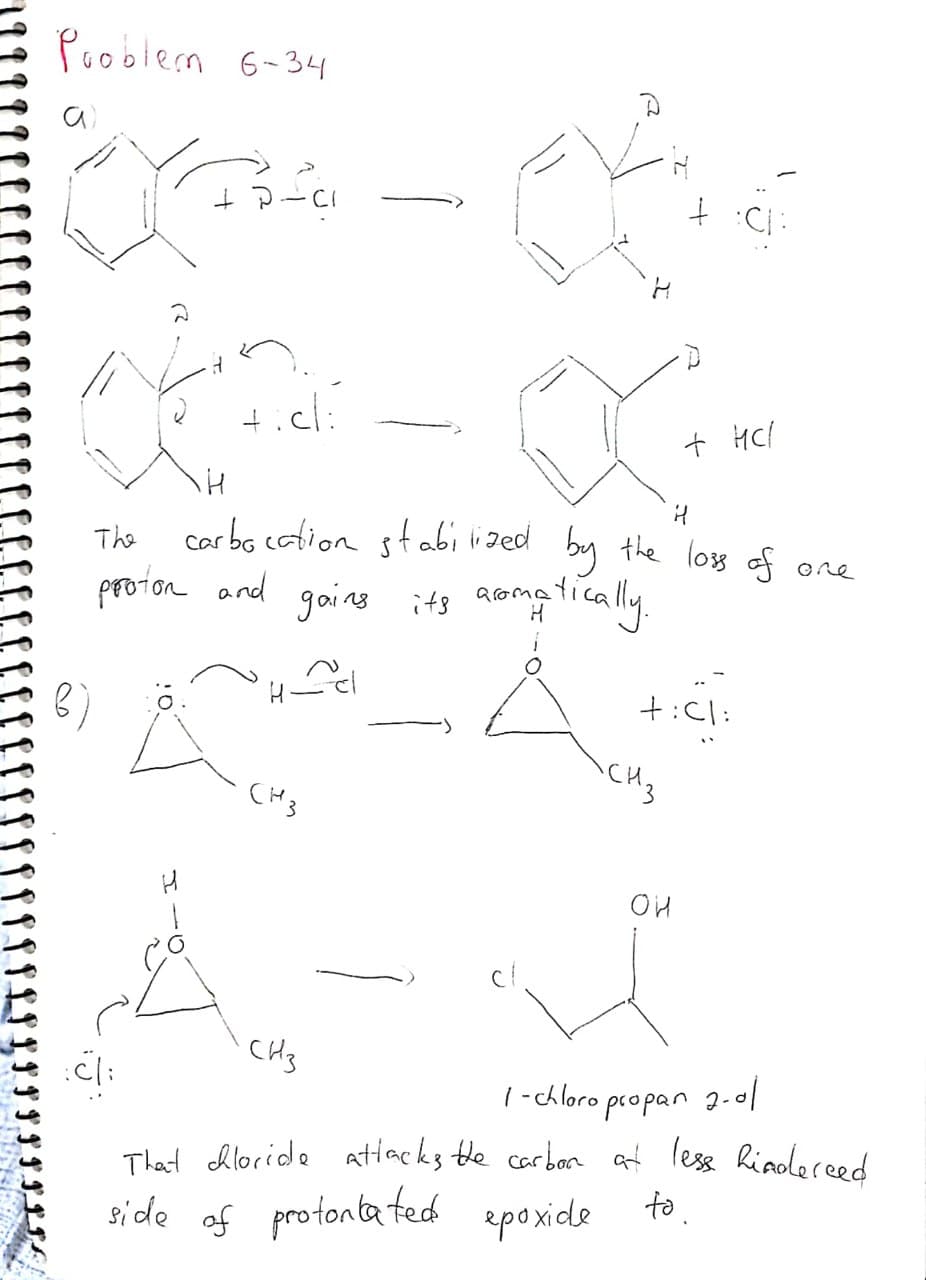 Problem 6-34
a)
D
H
+ D-Cl
+ :Cl: -
H
D
H
+ :Cl: -
H
D
+ HCl
H
The carbocation stabilized by the loss of one
proton and gains its aromatically.
H
O
b)
:O:
H-Cl
+ :Cl: -
CH3
CH3
H
O
OH
Cl
:Cl:
CH3
1-chloropropan 2-ol
That chloride attacks the carbon at less hindereed
side of protontated epoxide to.